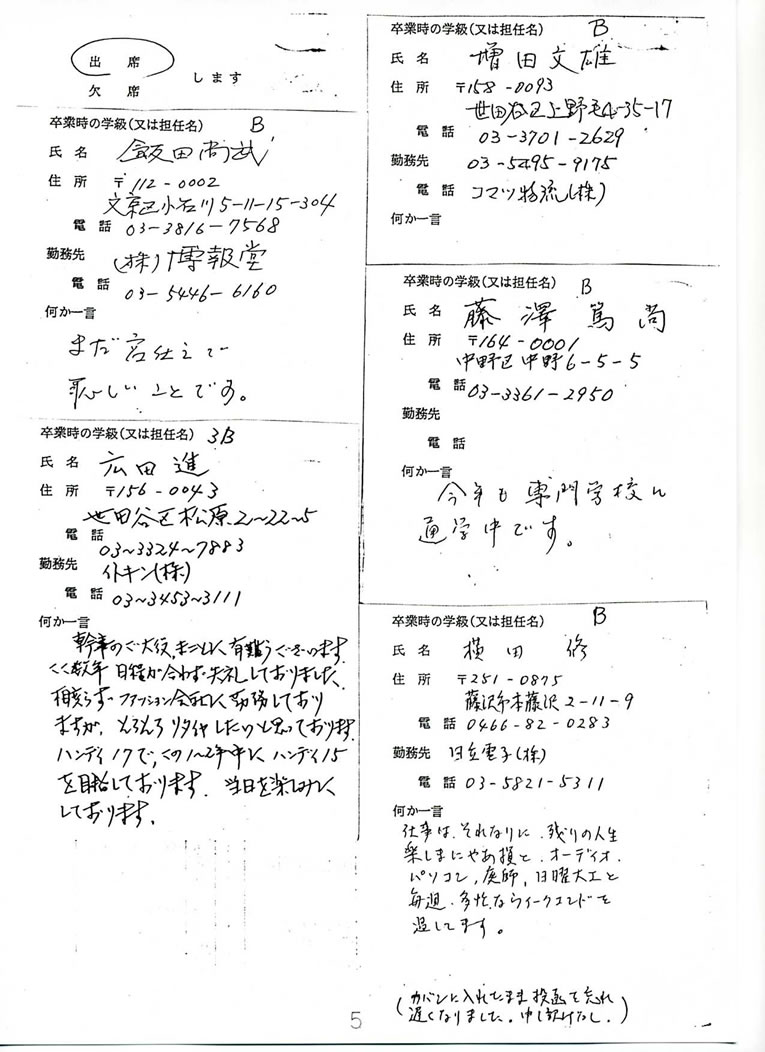 出席
します
欠席
卒業時の学級(又は担任名) B
氏名 飯田尚武
住所 〒112-0002
文京区小石川5-11-15-304
電話 03-3816-7568
勤務先 (株)博報堂
電話 03-5446-6160
何か一言
まだ宮仕えで
恥しいことです。
卒業時の学級(又は担任名) 3B
氏名 広田進
住所 〒156-0043
世田谷区松原2~22~5
電話 03~3324~7883
勤務先 イトキン(株)
電話 03~3453~3111
何か一言
幹事のご大役、まことに有難うございます
ここ数年 日程が合わず失礼しておりました
相変らずファッション会社に勤務しており
ますが、そろそろリタイヤしたいと思っております
ハンディ17で、この1~2年中に ハンディ15
を目指しております. 当日を楽しみに
しております.
卒業時の学級(又は担任名) B
氏名 増田文雄
住所 〒158-0093
世田谷区上野毛4-35-17
電話 03-3701-2629
勤務先 03-5495-9175
電話 コマツ物流(株)
何か一言
卒業時の学級(又は担任名) B
氏名 藤澤篤尚
住所 〒164-0001
中野区中野6-5-5
電話 03-3361-2950
勤務先
電話
何か一言
今年も専門学校に
通学中です。
卒業時の学級(又は担任名) B
氏名 横田修
住所 〒251-0875
藤沢市本藤沢2-11-9
電話 0466-82-0283
勤務先 日立電子(株)
電話 03-5821-5311
何か一言
仕事は、それなりに、残りの人生
楽しまにやあ損と、オーディオ、
パソコン、庭師、日曜大工と
毎週、多忙なウィークエンドを
過してます。
(カバンに入れたまま投函を忘れ
遅くなりました。申し訳けなし.)
5